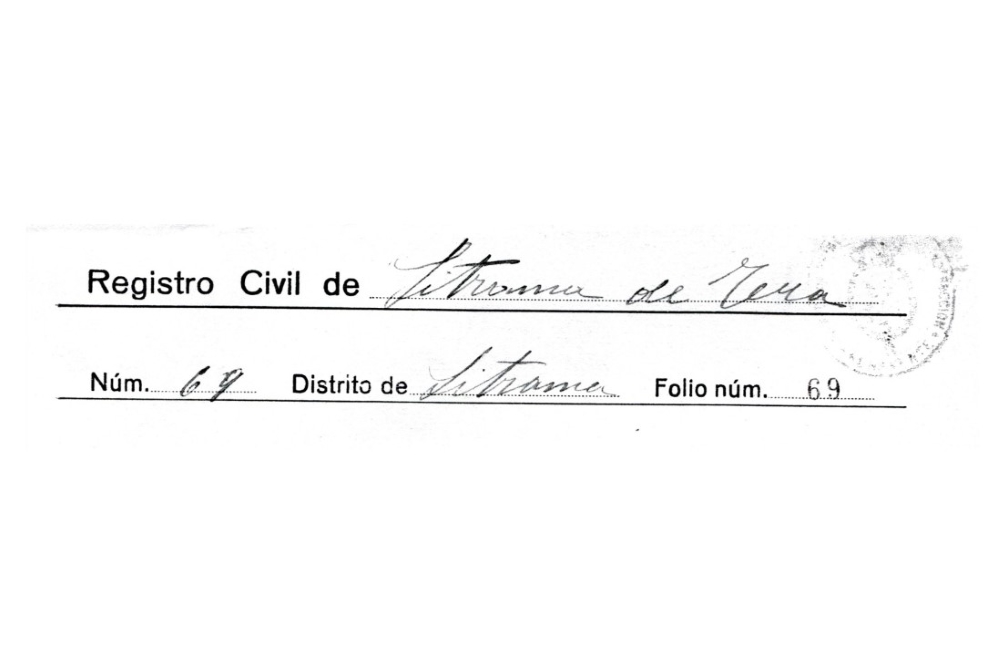 Registro Civil de Sitrama de Tera
Núm. 69 Distrito de Sitrama Folio núm. 69